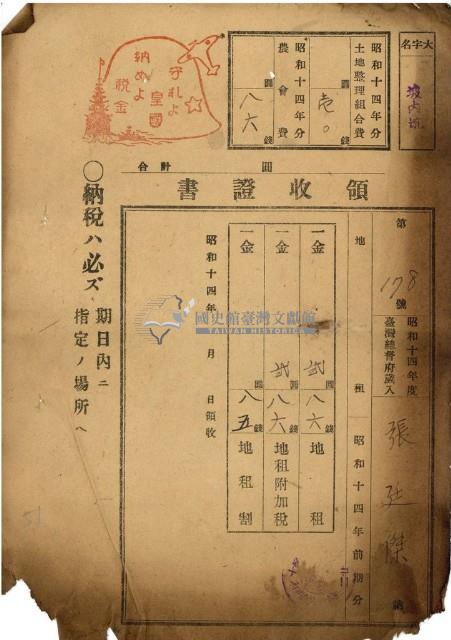 大字名
坡內坑
昭和十四年分
土地整理組合費
圓
壱〇
錢
昭和十四年分
農會費
圓
八六
錢
守れよ
皇國
納めよ
税金
合計
圓
領收證書
第
178
號
昭和十四年度
臺灣總督府歲入
張廷傑
納
地租
昭和十四年前期分
一金
貳
圓
八六
錢
地租
一金
貳
圓
八六
錢
地租附加税
一金
圓
八五
錢
地租割
昭和十四年
月
日領收
○納税ハ必ズ
期日內ニ
指定ノ場所ヘ
國史館臺灣文獻館
TAIWAN HISTORICA